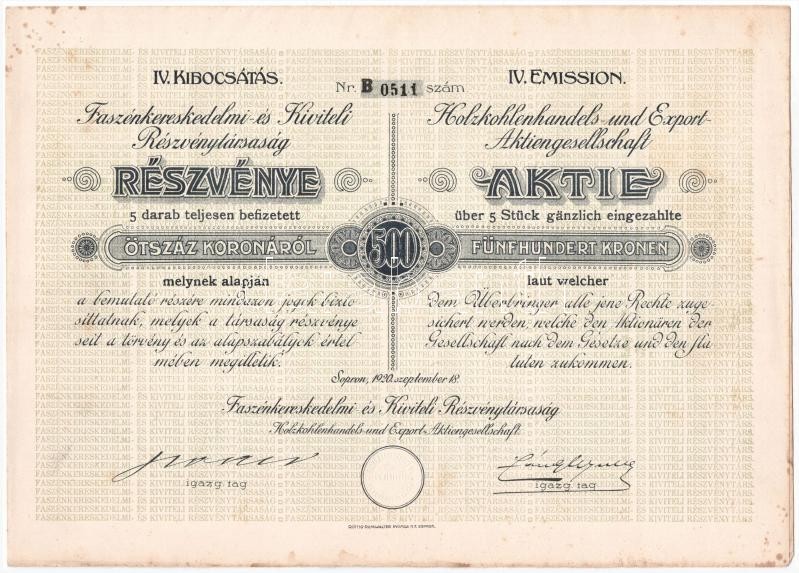 IV. KIBOCSÁTÁS.
Nr. B 0511 szám
IV. EMISSION.
Faszénkereskedelmi- és Kiviteli
Részvénytársaság
RÉSZVÉNYE
5 darab teljesen befizetett
ÖTSZÁZ KORONÁRÓL
500
melynek alapján
a bemutató részére mindazon jogok bizto
sittatnak, melyek a társaság részvénye
seit a törvény és az alapszabályok értel
mében megilletik.
Holzkohlenhandels- und Export-
Aktiengesellschaft
AKTIE
über 5 Stück gänzlich eingezahlte
FÜNFHUNDERT KRONEN
laut welcher
dem Überbringer alle jene Rechte zuge-
sichert werden, welche den Aktionären der
Gesellschaft nach dem Gesetze und den Sta
tuten zukommen.
Sopron, 1920. szeptember 18.
Faszénkereskedelmi- és Kiviteli Részvénytársaság
Holzkohlenhandels- und Export-Aktiengesellschaft
igazg. tag
igazg. tag
RÖTTIG-ROMWALTER NYOMDA R.T. SOPRON.